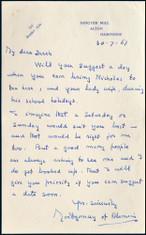 ISINGTON MILL,
ALTON,
HAMPSHIRE.
20-7-61
My dear
Will you suggest a day
when you can bring Nicholas to
see me, and your lady wife, during
his school holidays.
I imagine that a Saturday or
Sunday would suit you best –
and that would be right for me
too. But a good many people
are always wishing to see me and I
do get booked up. But I will
give you priority if you can suggest
a date soon.
Yrs. sincerely
Montgomery of Alamein